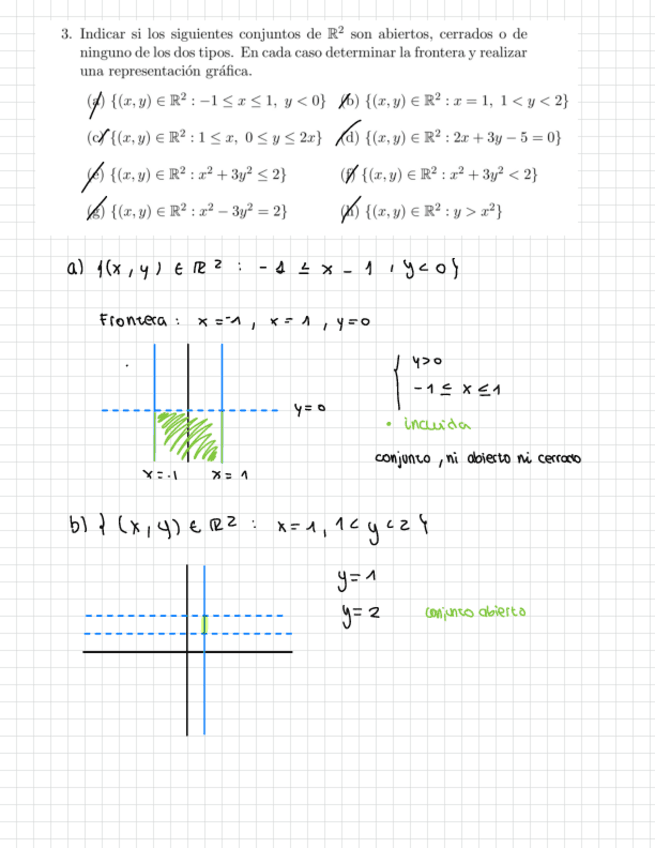 3. Indicar si los siguientes conjuntos de ℝ² son abiertos, cerrados o de
ninguno de los dos tipos. En cada caso determinar la frontera y realizar
una representación gráfica.
(a) {(x, y) ∈ ℝ² : −1 ≤ x ≤ 1, y < 0} (b) {(x, y) ∈ ℝ² : x = 1, 1 < y < 2}
(c) {(x, y) ∈ ℝ² : 1 ≤ x, 0 ≤ y ≤ 2x} (d) {(x, y) ∈ ℝ² : 2x + 3y − 5 = 0}
(e) {(x, y) ∈ ℝ² : x² + 3y² ≤ 2} (f) {(x, y) ∈ ℝ² : x² + 3y² < 2}
(g) {(x, y) ∈ ℝ² : x² − 3y² = 2} (h) {(x, y) ∈ ℝ² : y > x²}
a) {(x, y) ∈ ℝ² : -1 ≤ x - 1, y < 0}
Frontera : x = -1, x = 1, y = 0
y > 0
-1 ≤ x ≤ 1
y = 0
• incluida
conjunto, ni abierto ni cerrado
x = -1 x = 1
b) } (x, y) ∈ ℝ² : x = 1, 1 < y < 2 }
y = 1
y = 2 conjunto abierto